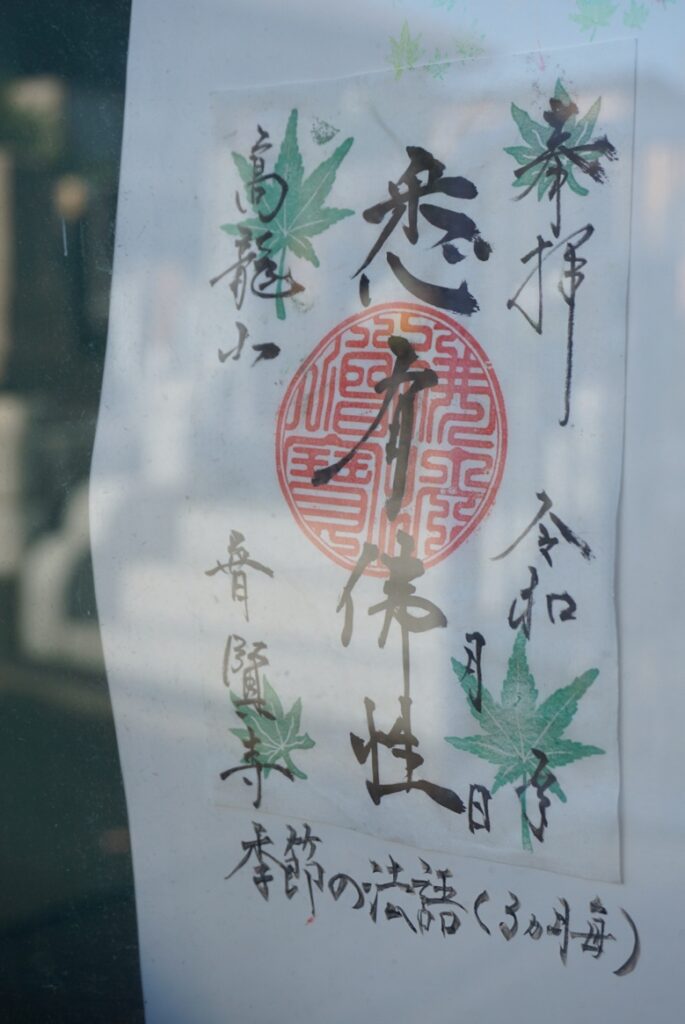 奉拝
令和　年
月　日
悉有佛性
佛法僧寶
高龍山
普賢寺
季節の法語(3ヵ月毎)